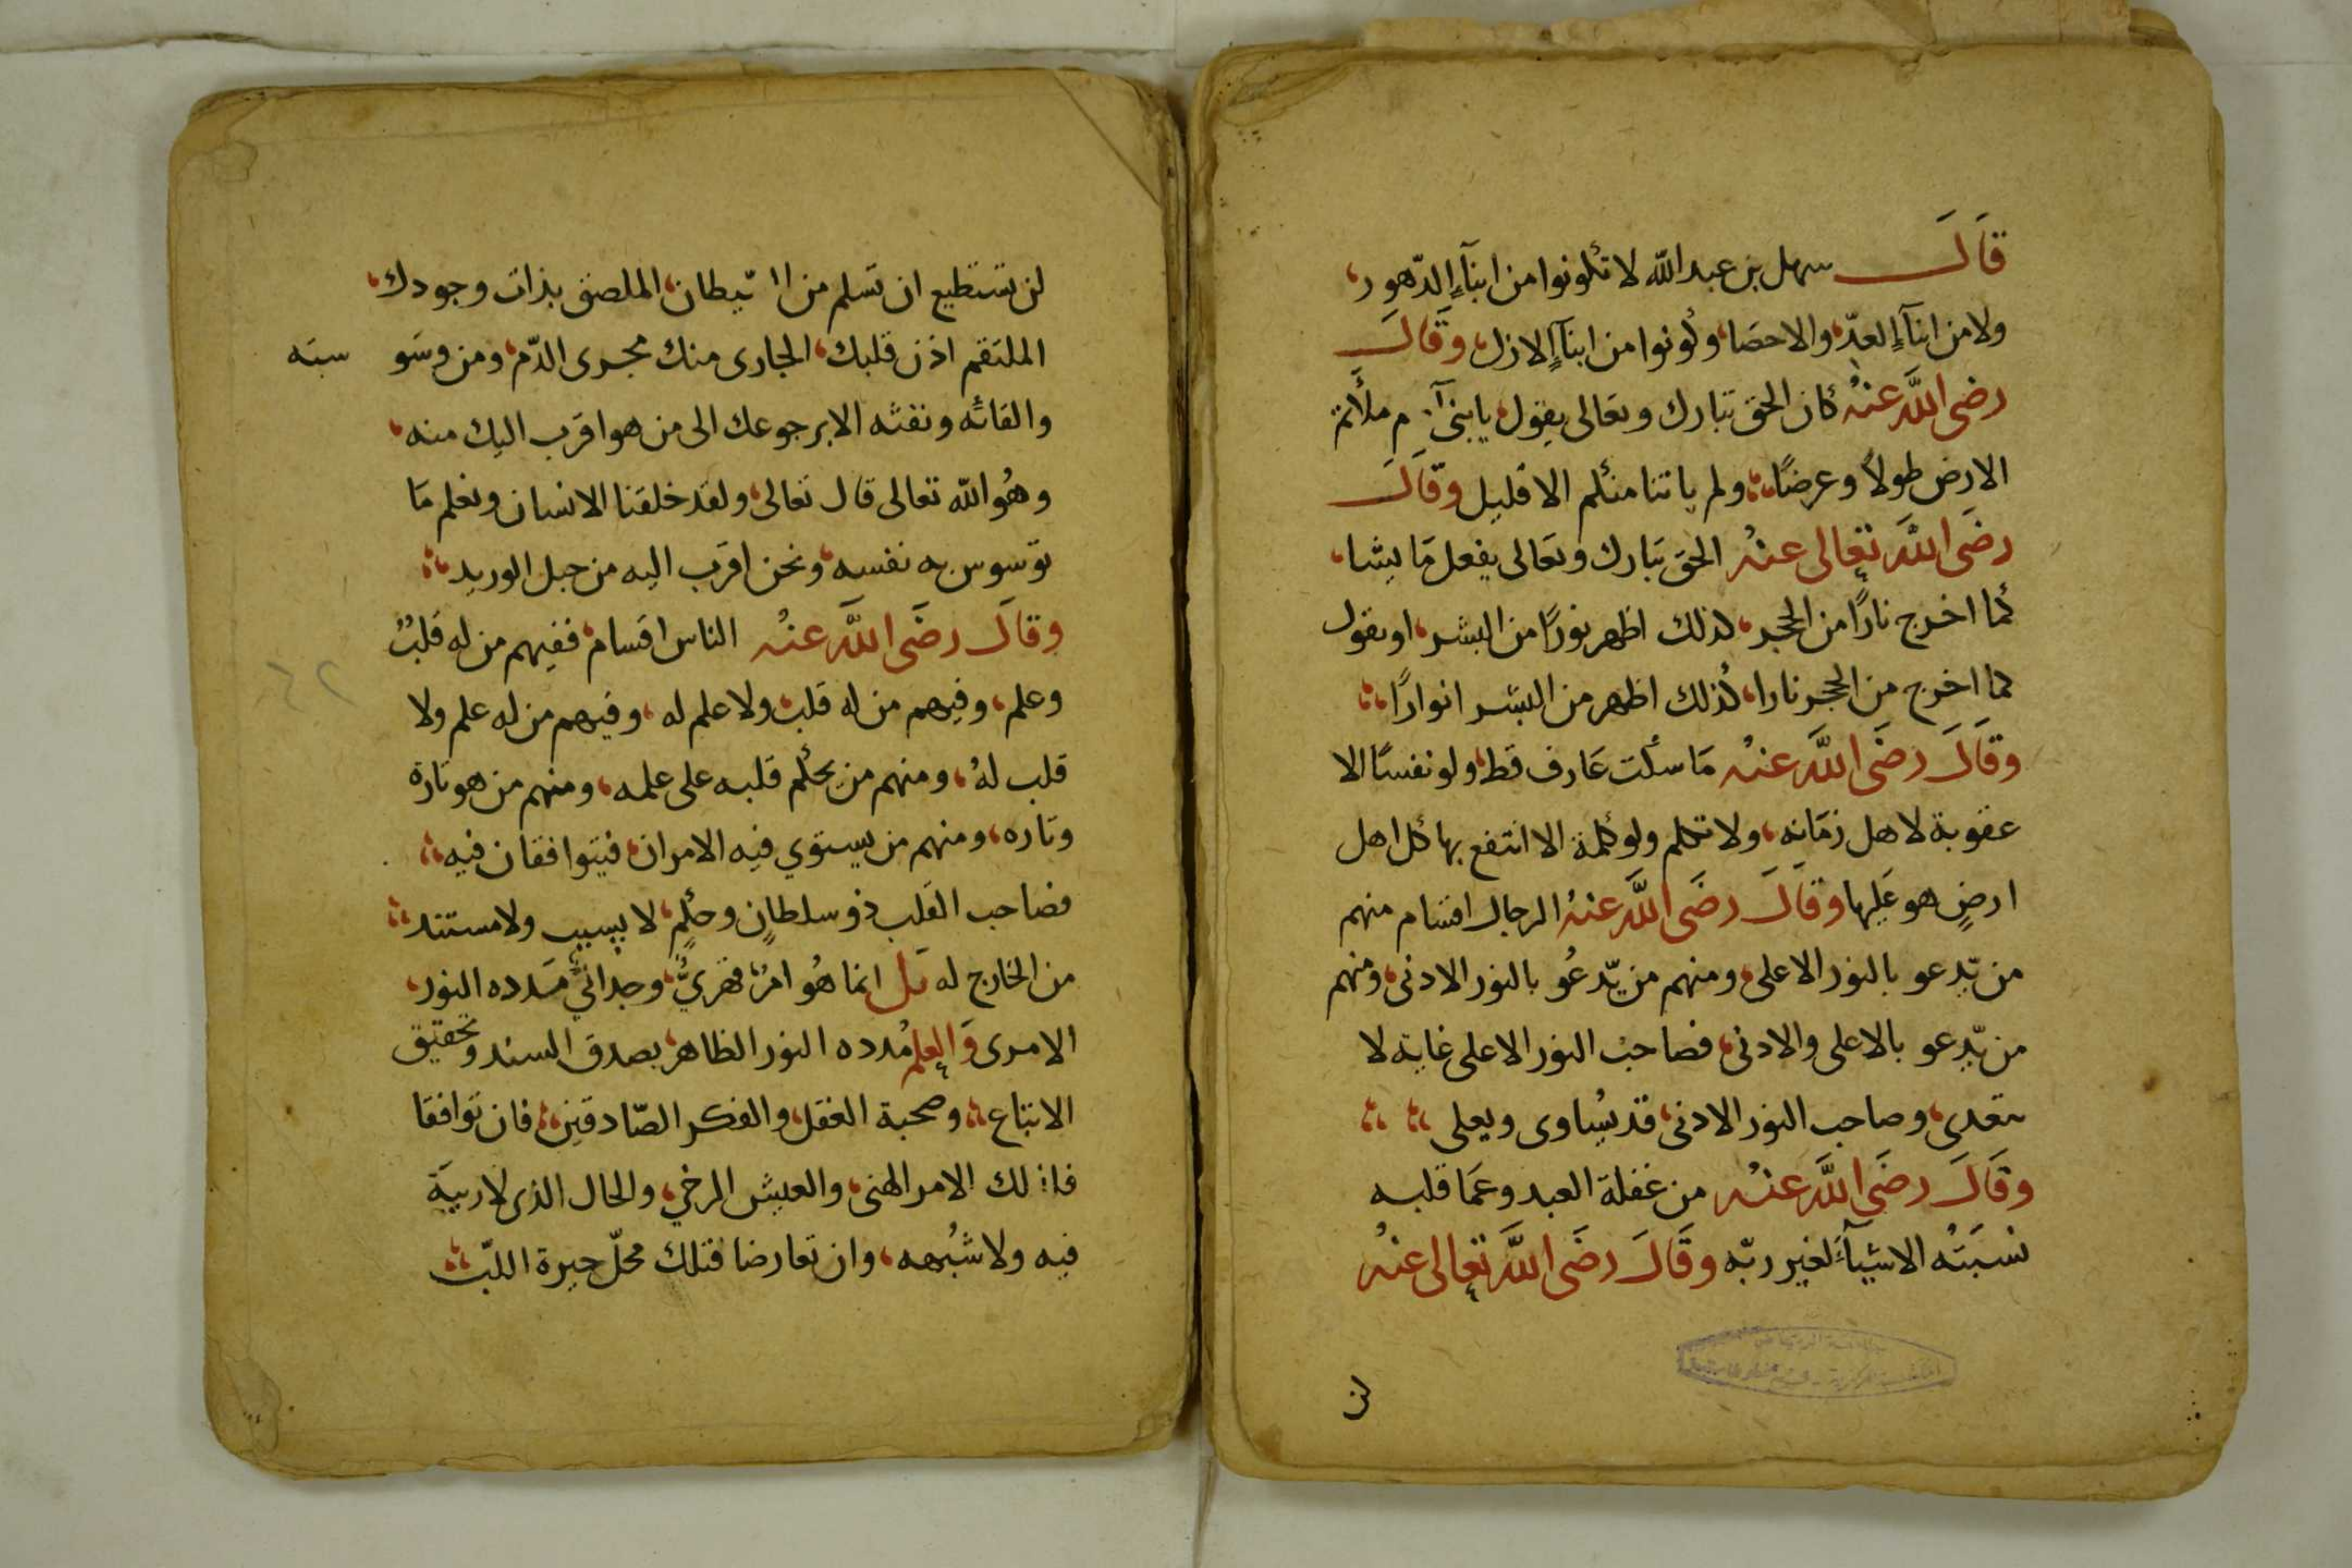 قَالَ سهل بن عبد الله لا تكونوا من ابنآءِ الدّهور،
ولا من ابنآءِ العدِّ، والاحصَا، وكونوا من ابنآءِ الازل، وقَالَ
رضى اللَّه عنهُ كان الحق تبارك وتعالى يقول، يا بنى آدم ملأتم
الارض طولاً وعرضًا، ولم ياتنا منكم الا قليل وقَالَ
رضَى اللَّه تعالى عنهُ الحق تبارك وتعَالى يفعل مَا يشا،
كما اخرج نارًا من الحجر، كذلك اظهر نورًا من البشر، او يقول
كما اخرج من الحجر نارا، كذلك اظهر من البشر انوارًا،
وقَالَ رضَى اللَّه عنهُ مَا سكت عَارف قط، ولو نفسًا الا
عقوبة لاهل زمَانه، ولا تكلم ولو كلمة الا انتفع بها كل اهل
ارضٍ هو عَليها وقَالَ رضَى اللَّه عنهُ الرجال اقسَام منهم
من يّدعو بالنور الاعلى، ومنهم من يّدعُو بالنور الادنى، ومنهم
من يّدعو بالاعلى والادنى، فصاحبُ النور الاعلى غاية لا
تتعدى، وصاحب النور الادنى، قد يُساوى ويعلى
وقَالَ رضَى اللَّه عنهُ من غفلة العبد وعمَا قلبه
نسبَتُه الاشيآءَ لغير ربّه وقَالَ رضَى اللَّه تعالى عنهُ
لن
لن تستطيع ان تسلم من الشيطان، الملصق بذات وجودك،
الملتقم اذن قلبك، الجارى منك مجرى الدّم، ومن وسَوسته
والقائه ونفثه الا برجوعك الى من هو اقرب اليك منه،
وهُو الله تعالى قال تعالى، ولقد خلقنا الانسان ونعلم مَا
توسوس به نفسه، ونحن اقرب اليه من حبل الوريد،
وقالَ رضَى اللَّه عنهُ الناس اقسام، ففيهم من له قلبٌ
وعلم، وفيهم من له قلب، ولا علم له، وفيهم من له علم ولا
قلب لهُ، ومنهم من يحكم قلبه على علمه، ومنهم من هو تارة
وتاره، ومنهم من يستوي فيه الامران، فيتوافقان فيه،
فصاحب القلب ذو سلطانٍ وحكمٍ، لا بسببٍ ولا مستند،
من الخارج له بل انما هُو امرٌ قهريٌّ، وجدانيٌّ مَدده النور،
الامرى وَالعلمُ مُدده النور الظاهر، بصدق السند وتحقيق
الاتباع، وصحبة العقل، والفكر الصّادقين، فان توافقا
فاذلك الامر الهنى، والعيش الرخي، والحال الذى لا ريبَة
فيه ولا شبُهه، وان تعارضا فتلك محلّ حيرة اللبّ،